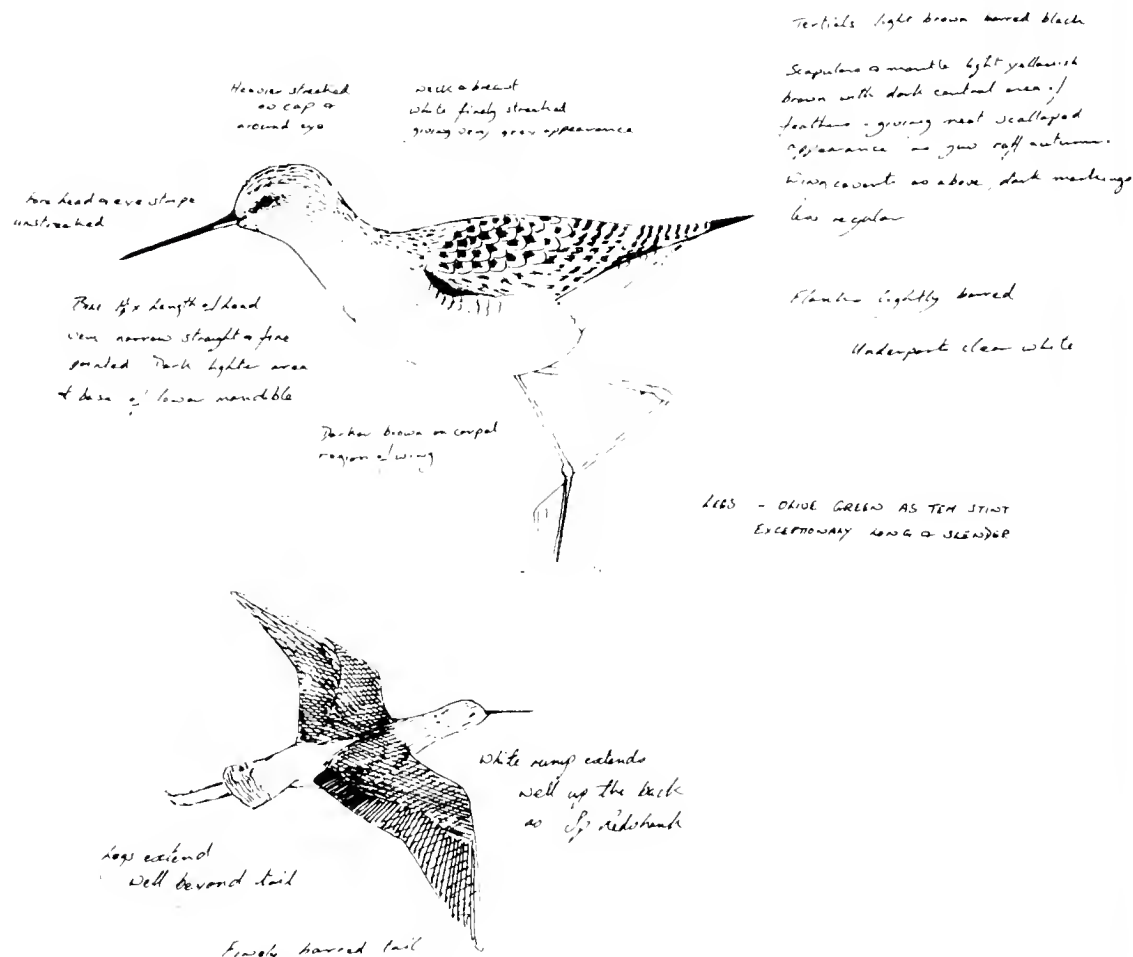 Tertials light brown barred black
Scapulars & mantle light yellowish
brown with dark central area of
feathers - giving neat scalloped
appearance as juv ruff autumn.
Wing coverts as above, dark markings
less regular
Heavier streaked
on cap &
around eye
neck & breast
white finely streaked
giving very grey appearance
Forehead & eye stripe
unstreaked
Bill 1½ x length of head
very narrow straight & fine
pointed Dark lighter area
at base of lower mandible
Flanks lightly barred
Underparts clear white
Darker brown on carpal
region of wing
LEGS - OLIVE GREEN AS TEM STINT
EXCEPTIONALY LONG & SLENDER
White rump extends
well up the back
as Sp redshank
Legs extend
well beyond tail
Finely barred tail